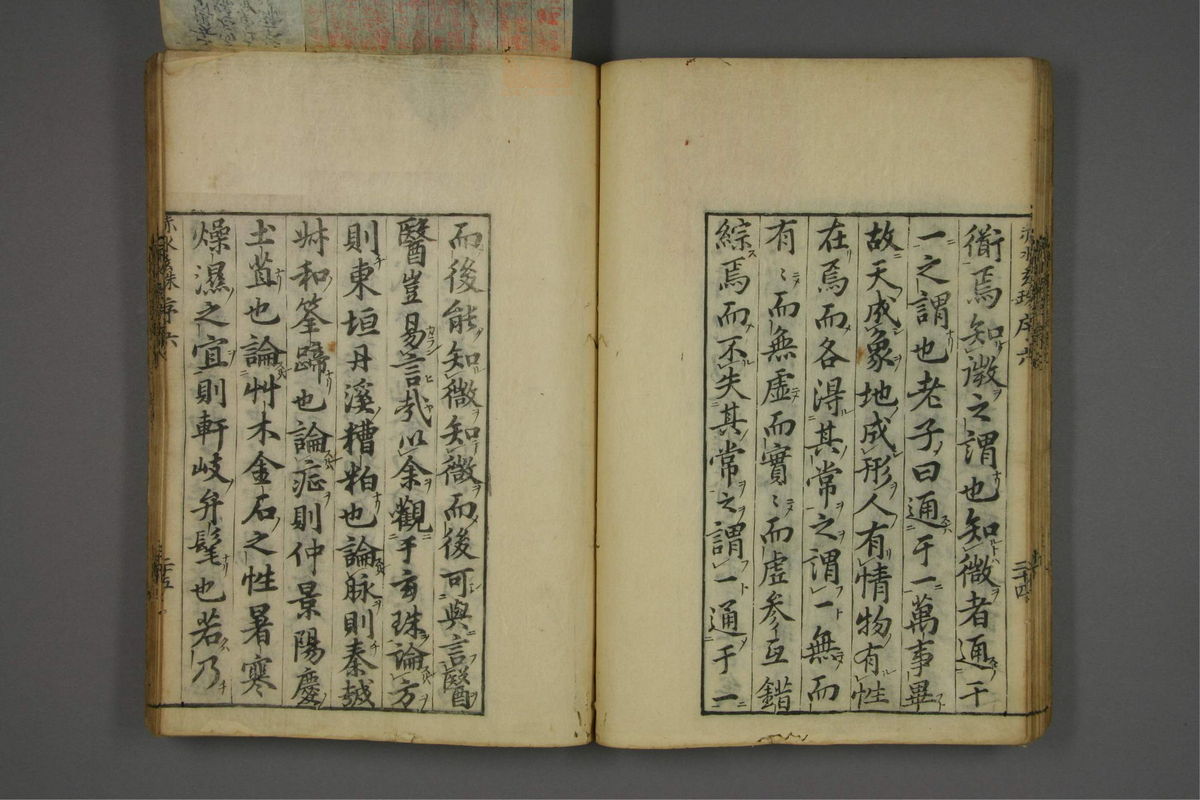 衛焉知微之謂也知微者通于
一之謂也老子曰通于一萬事畢
故天成象地成形人有情物有性
在焉而各得其常之謂一無而
有〻而無虚而實〻而虚参互錯
綜焉而不失其常之謂一通于一
而後能知微知微而後可與言醫
醫豈易言哉以余觀于玄珠論方
則東垣丹溪糟粕也論脉則秦越
岐和筌蹄也論症則仲景陽慶
土苴也論艸木金石之性暑寒
燥濕之宜則軒岐弁髦也若乃
赤水玄珠序六